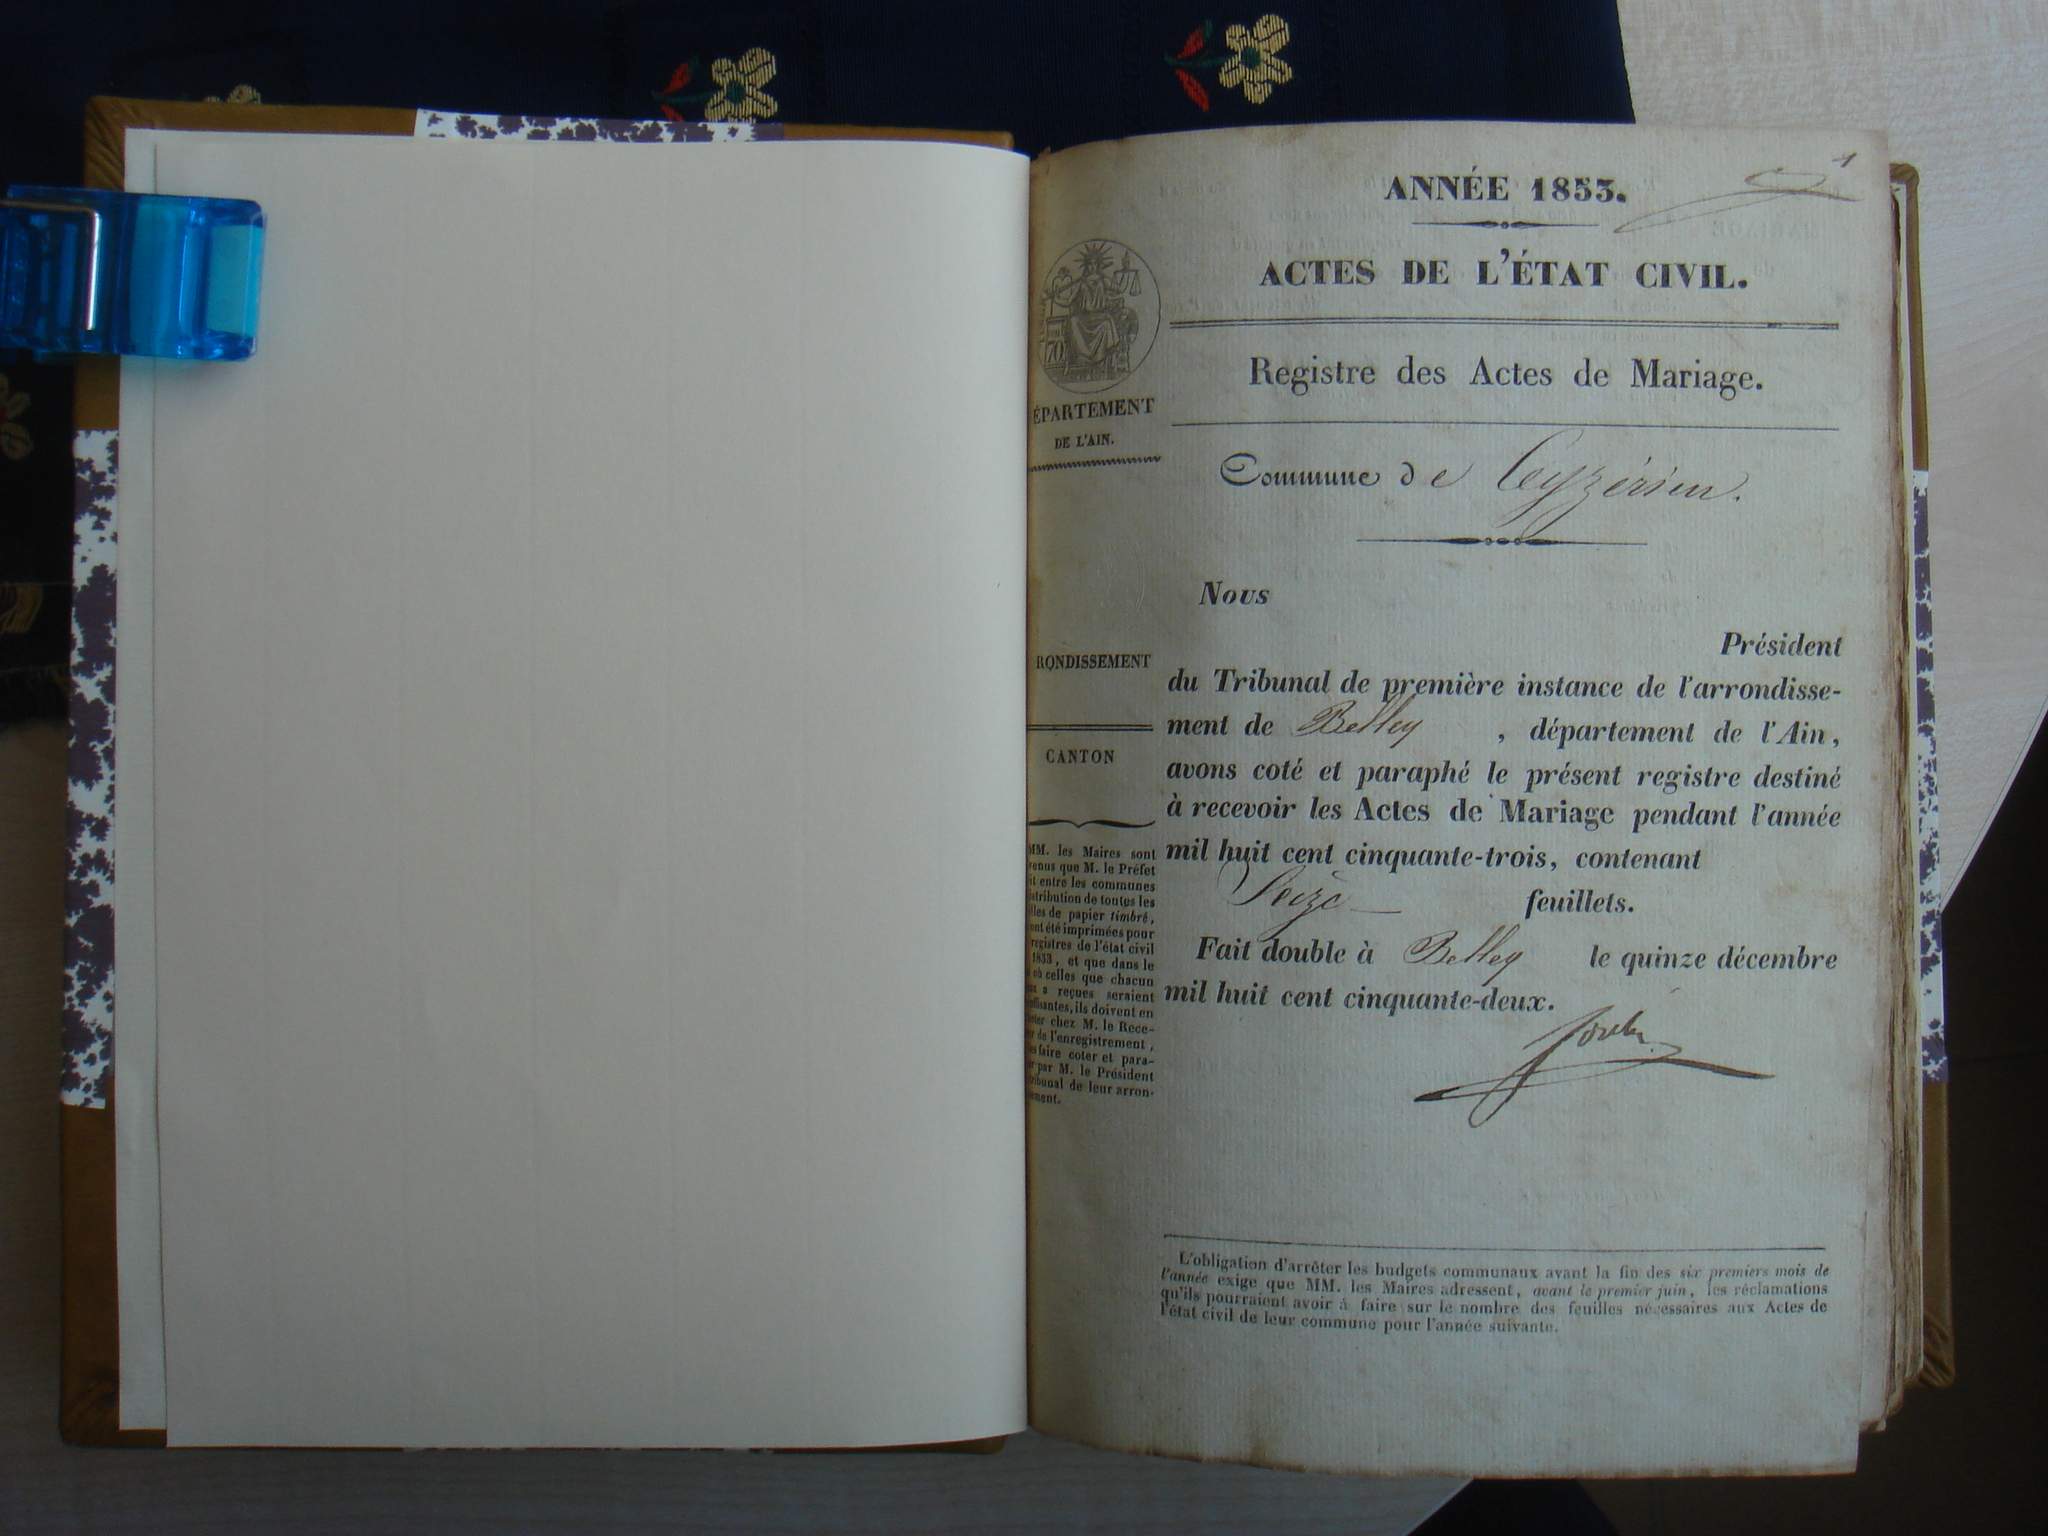 1
ANNÉE 1853.
ACTES DE L'ÉTAT CIVIL.
70
ÉPARTEMENT
DE L'AIN.
Registre des Actes de Mariage.
Commune de Ceyzérieu.
Nous
Président
du Tribunal de première instance de l'arrondisse-
ment de Belley , département de l'Ain,
avons coté et paraphé le présent registre destiné
à recevoir les Actes de Mariage pendant l'année
mil huit cent cinquante-trois, contenant
Seize feuillets.
Fait double à Belley le quinze décembre
mil huit cent cinquante-deux.
RONDISSEMENT
CANTON
MM. les Maires sont
venus que M. le Préfet
it entre les communes
istribution de toutes les
lles de papier timbré,
ont été imprimées pour
registres de l'état civil
1853, et que dans le
où celles que chacun
a reçues seraient
ffisantes, ils doivent en
ter chez M. le Rece-
r de l'enregistrement,
es faire coter et para-
er par M. le Président
ribunal de leur arron-
ement.
L'obligation d'arrêter les budgets communaux avant la fin des six premiers mois de
l'année exige que MM. les Maires adressent, avant le premier juin, les réclamations
qu'ils pourraient avoir à faire sur le nombre des feuilles nécessaires aux Actes de
l'état civil de leur commune pour l'année suivante.